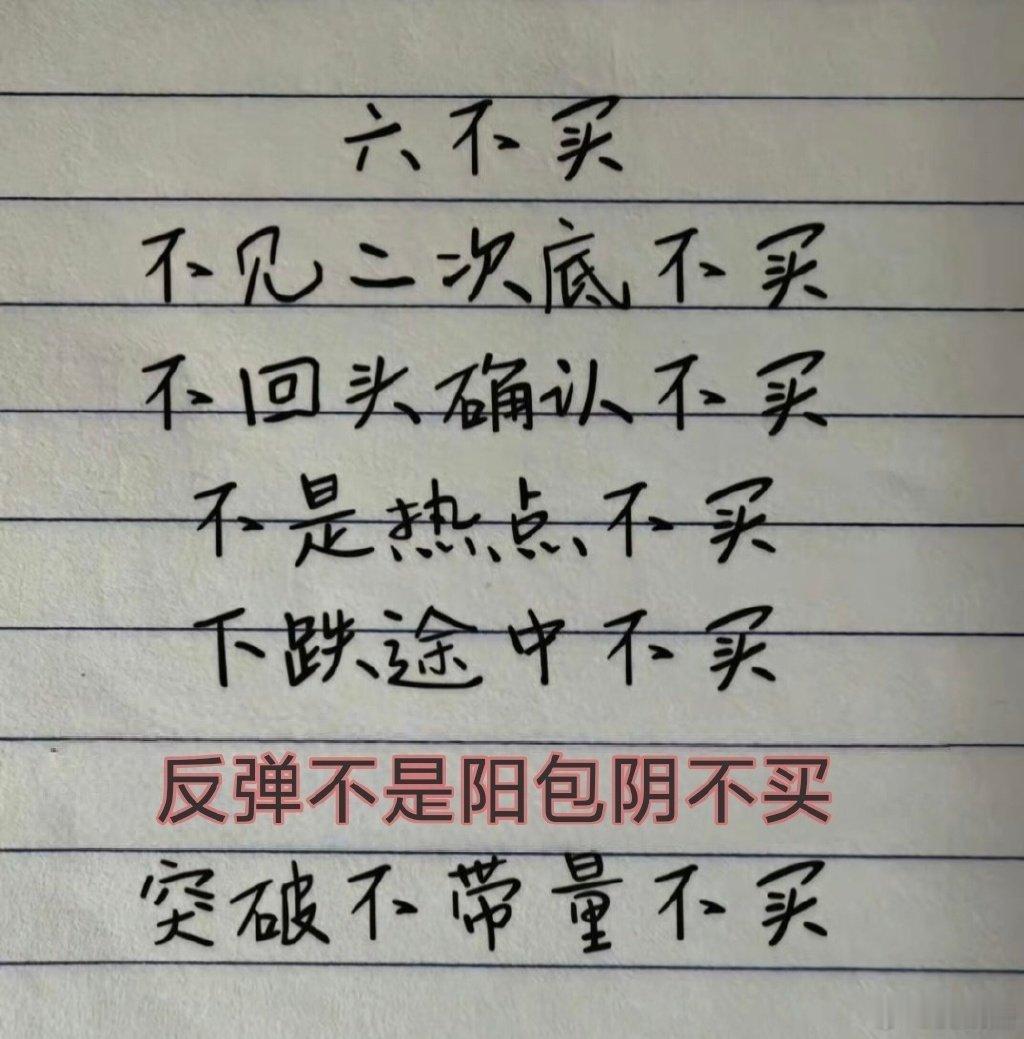 六不买
不见二次底不买
不回头确认不买
不是热点不买
下跌途中不买
反弹不是阳包阴不买
突破不带量不买